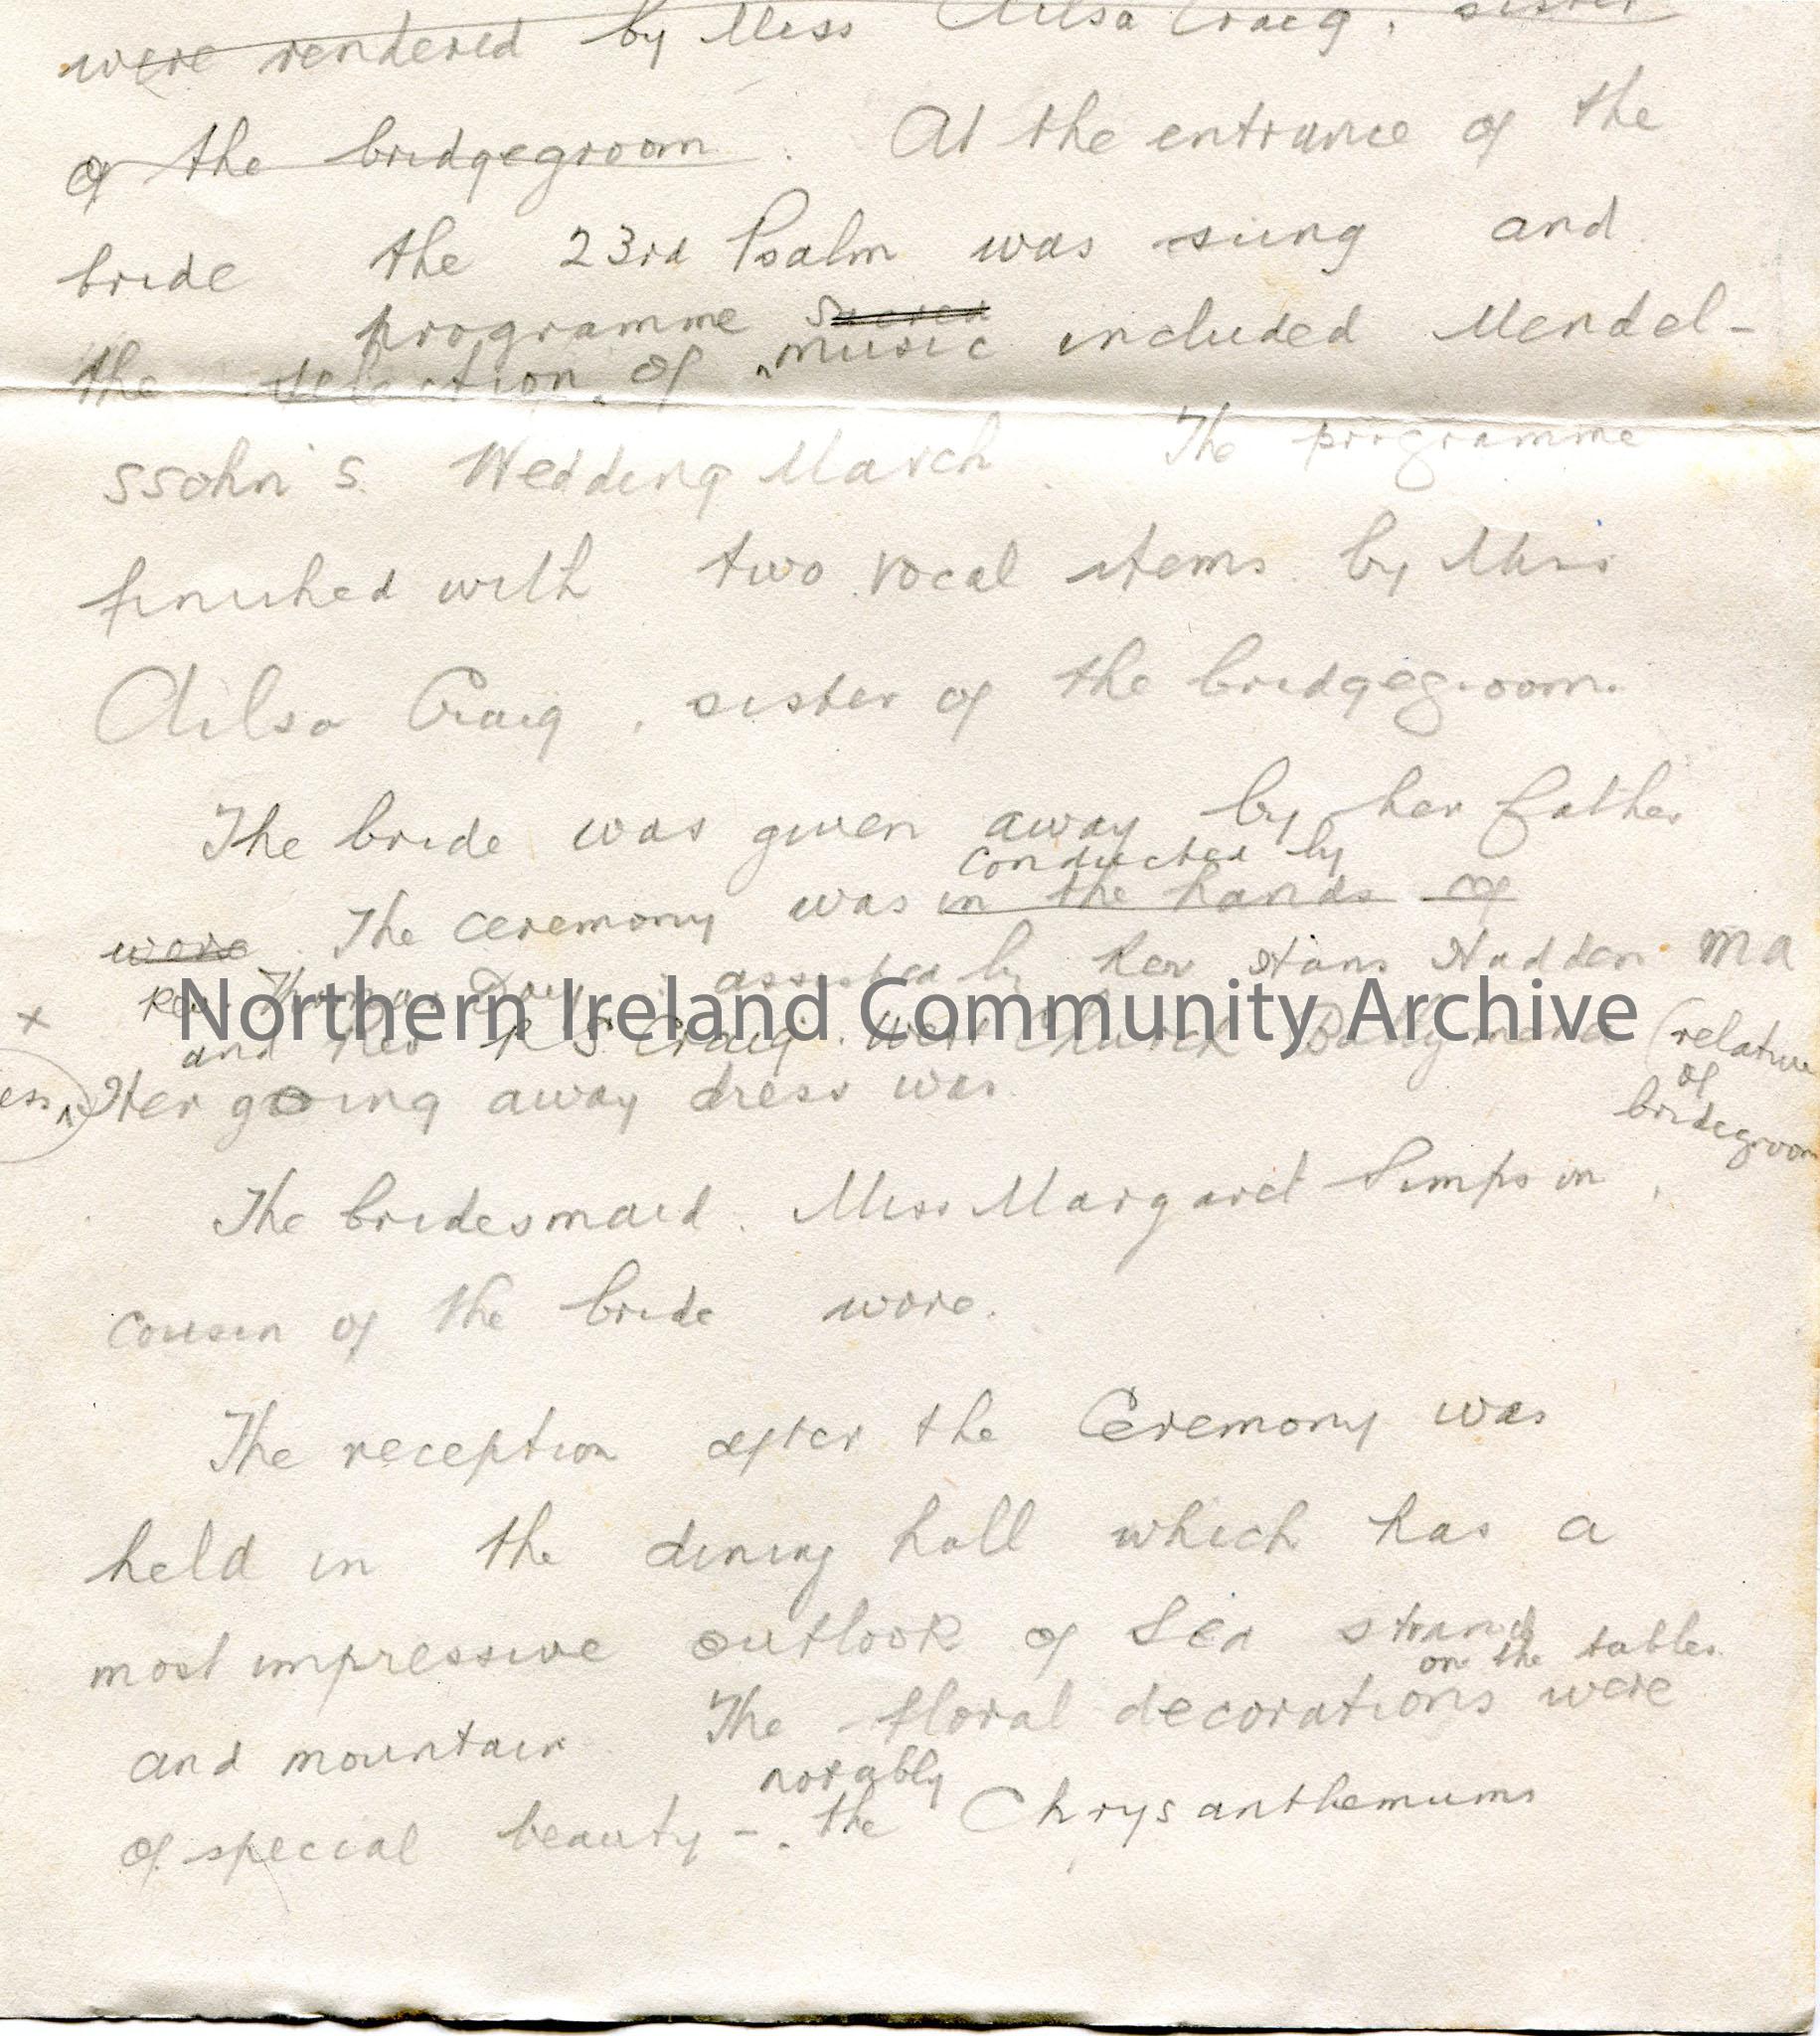 were rendered by Miss Ailsa Craig, sister
of the bridgegroom. At the entrance of the
bride the 23rd Psalm was sung and
programme Sacred
the selection of music included Mendel-
ssohn's Wedding March. The programme
finished with two vocal items by Miss
Ailsa Craig, sister of the bridgegroom.
The bride was given away by her father
conducted by
were. The ceremony was in the hands of
Rev. Thomas assisted by Rev Hans Hadden MA
Northern Ireland Community Archive
x and Rev R S Craig. West Church Ballymena (relative
of
bridegroom
Her going away dress was
The bridesmaid. Miss Margaret Simpson,
cousin of the bride wore.
The reception after the Ceremony was
held in the dining hall which has a
most impressive outlook of Sea strand
on the tables
and mountain. The floral decorations were
notably
of special beauty - the Chrysanthemums